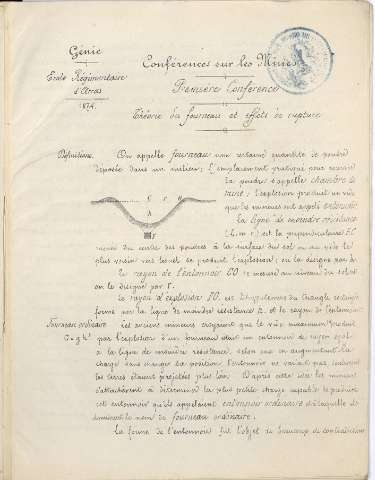 Génie
Ecole Régimentaire
d'Arras
1874
Conférences sur les Mines
Première Conférence
Théorie du fourneau et effets de rupture
Définitions. On appelle fourneau une certaine quantité de poudre
déposée dans un milieu; l'emplacement pratiqué pour recevoir
la poudre s'appelle chambre de
mine; l'explosion produit un vide
que les mineurs ont appelé entonnoir
la ligne de moindre résistance
(L.m.r.) est la perpendiculaire FC
menée du centre des poudres à la surface du sol ou au vide le
plus voisin vers lequel se produit l'explosion; on la désigne par h
le rayon de l'entonnoir CO se mesure au niveau du sol
on le désigne par r.
le rayon d'explosion FO est l'hypoténuse du triangle rectangle
formé par la ligne de moindre résistance h et le rayon de l'entonnoir
Fourneau ordinaire les anciens mineurs croyaient que le vide maximum produit
par l'explosion d'un fourneau était un entonnoir de rayon égal
à la ligne de moindre résistance, selon eux en augmentant la
charge sans changer sa position l'entonnoir ne variait pas, seulement
les terres étaient projetées plus loin. D'après cette idée les mineurs
s'attachèrent à déterminer la plus petite charge capable de produire
cet entonnoir qu'ils appelaient entonnoir ordinaire et à laquelle ils
donnaient le nom de fourneau ordinaire.
La forme de l'entonnoir fut l'objet de beaucoup de contradictions